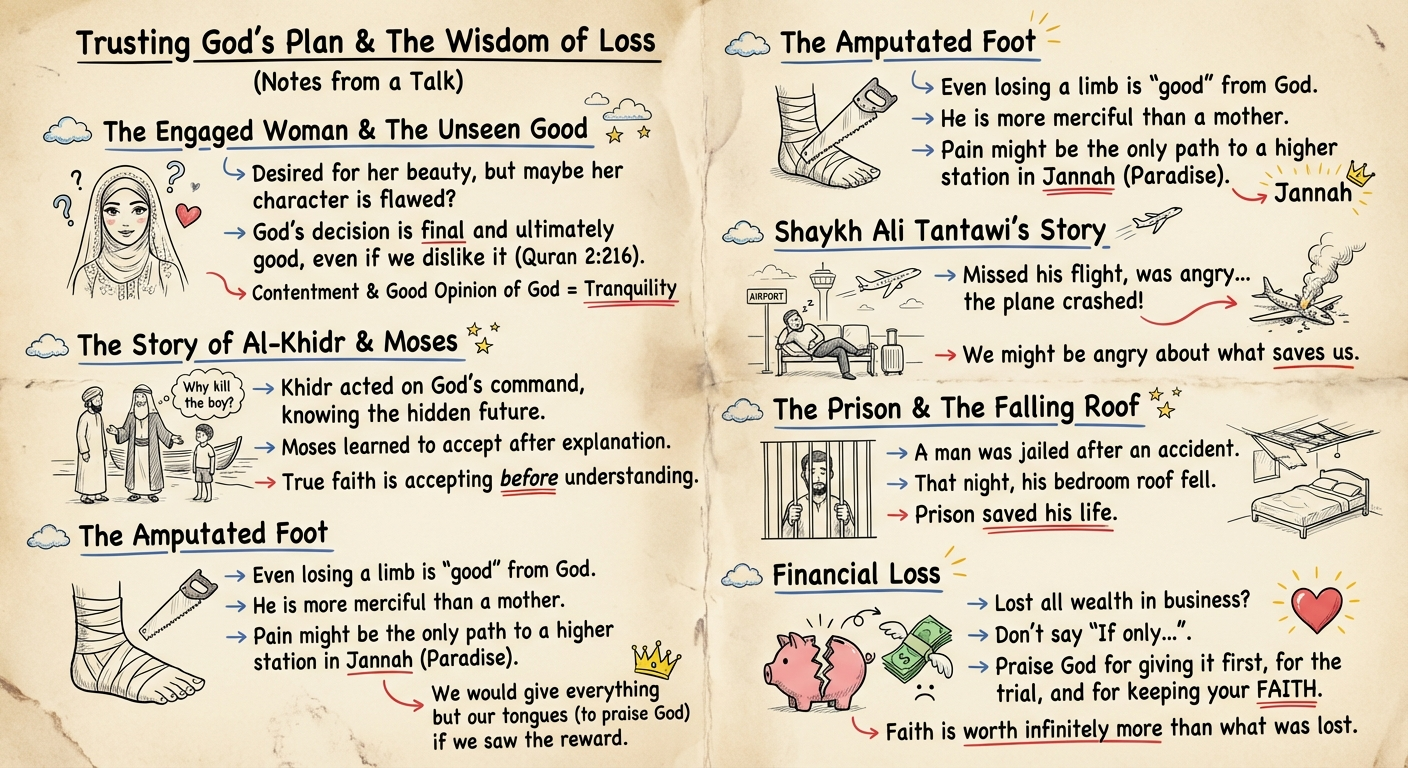 Trusting God's Plan & The Wisdom of Loss
(Notes from a Talk)
The Engaged Woman & The Unseen Good
? ? ?
→ Desired for her beauty, but maybe her
character is flawed?
→ God's decision is final and ultimately
good, even if we dislike it (Quran 2:216).
→ Contentment & Good Opinion of God = Tranquility
The Story of Al-Khidr & Moses
Why kill
the boy?
→ Khidr acted on God's command,
knowing the hidden future.
→ Moses learned to accept after explanation.
→ True faith is accepting before understanding.
The Amputated Foot
→ Even losing a limb is “good” from God.
→ He is more merciful than a mother.
→ Pain might be the only path to a higher
station in Jannah (Paradise).
→ We would give everything
but our tongues (to praise God)
if we saw the reward.
The Amputated Foot
→ Even losing a limb is “good” from God.
→ He is more merciful than a mother.
→ Pain might be the only path to a higher
station in Jannah (Paradise).
→ Jannah
Shaykh Ali Tantawi's Story
AIRPORT
z z
→ Missed his flight, was angry...
the plane crashed!
→ We might be angry about what saves us.
The Prison & The Falling Roof
→ A man was jailed after an accident.
→ That night, his bedroom roof fell.
→ Prison saved his life.
Financial Loss
$
→ Lost all wealth in business?
→ Don't say “If only...”.
→ Praise God for giving it first, for the
trial, and for keeping your FAITH.
→ Faith is worth infinitely more than what was lost.